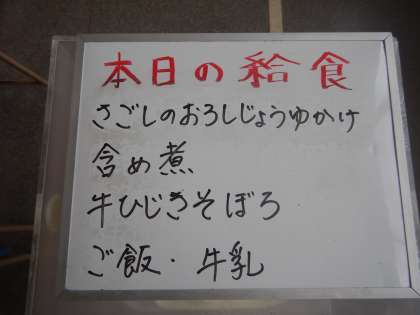 本日の給食
さごしのおろしじょうゆかけ
含め煮
牛ひじきそぼろ
ご飯・牛乳